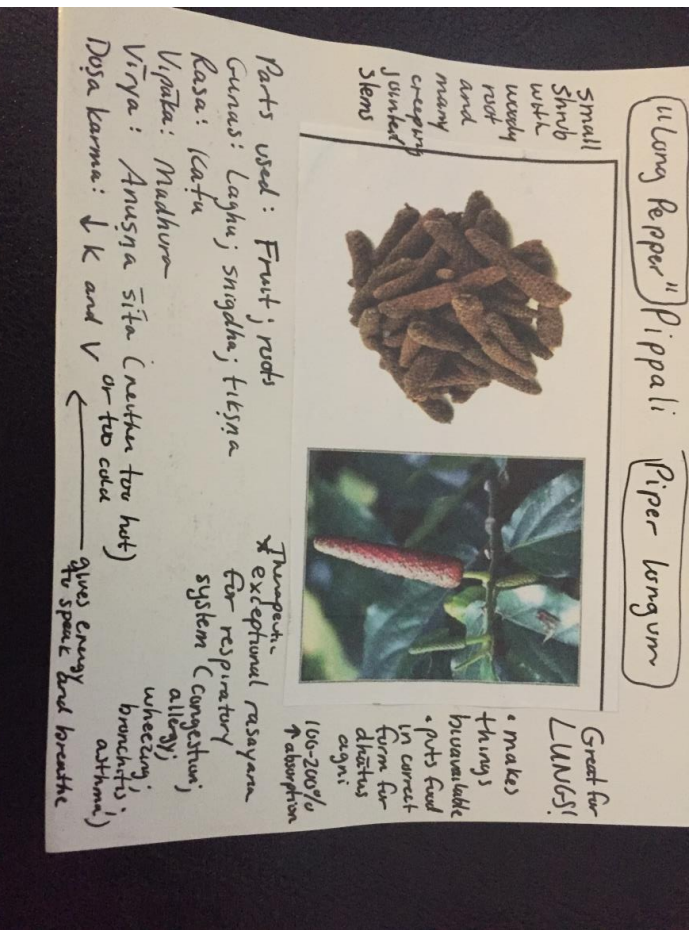 "Long Pepper" Pippali Piper longum
small
shrub
with
woody
root
and
many
creeping
jointed
stems
Great for
LUNGS!
• makes
things
bioavailable
• puts food
in correct
form for
dhātus
agni
100-200%
↑ absorption
Parts used: Fruit; roots
Gunas: Laghu; snigdha; tikṣṇa
Rasa: Kaṭu
Vipāka: Madhura
Vīrya: Anuṣṇa śīta (neither too hot)
or too cold
Doṣa karma: ↓ K and V
Therapeutic
* exceptional rasayana
for respiratory
system (congestion;
allergy;
wheezing;
bronchitis;
asthma)
gives energy
to speak and breathe